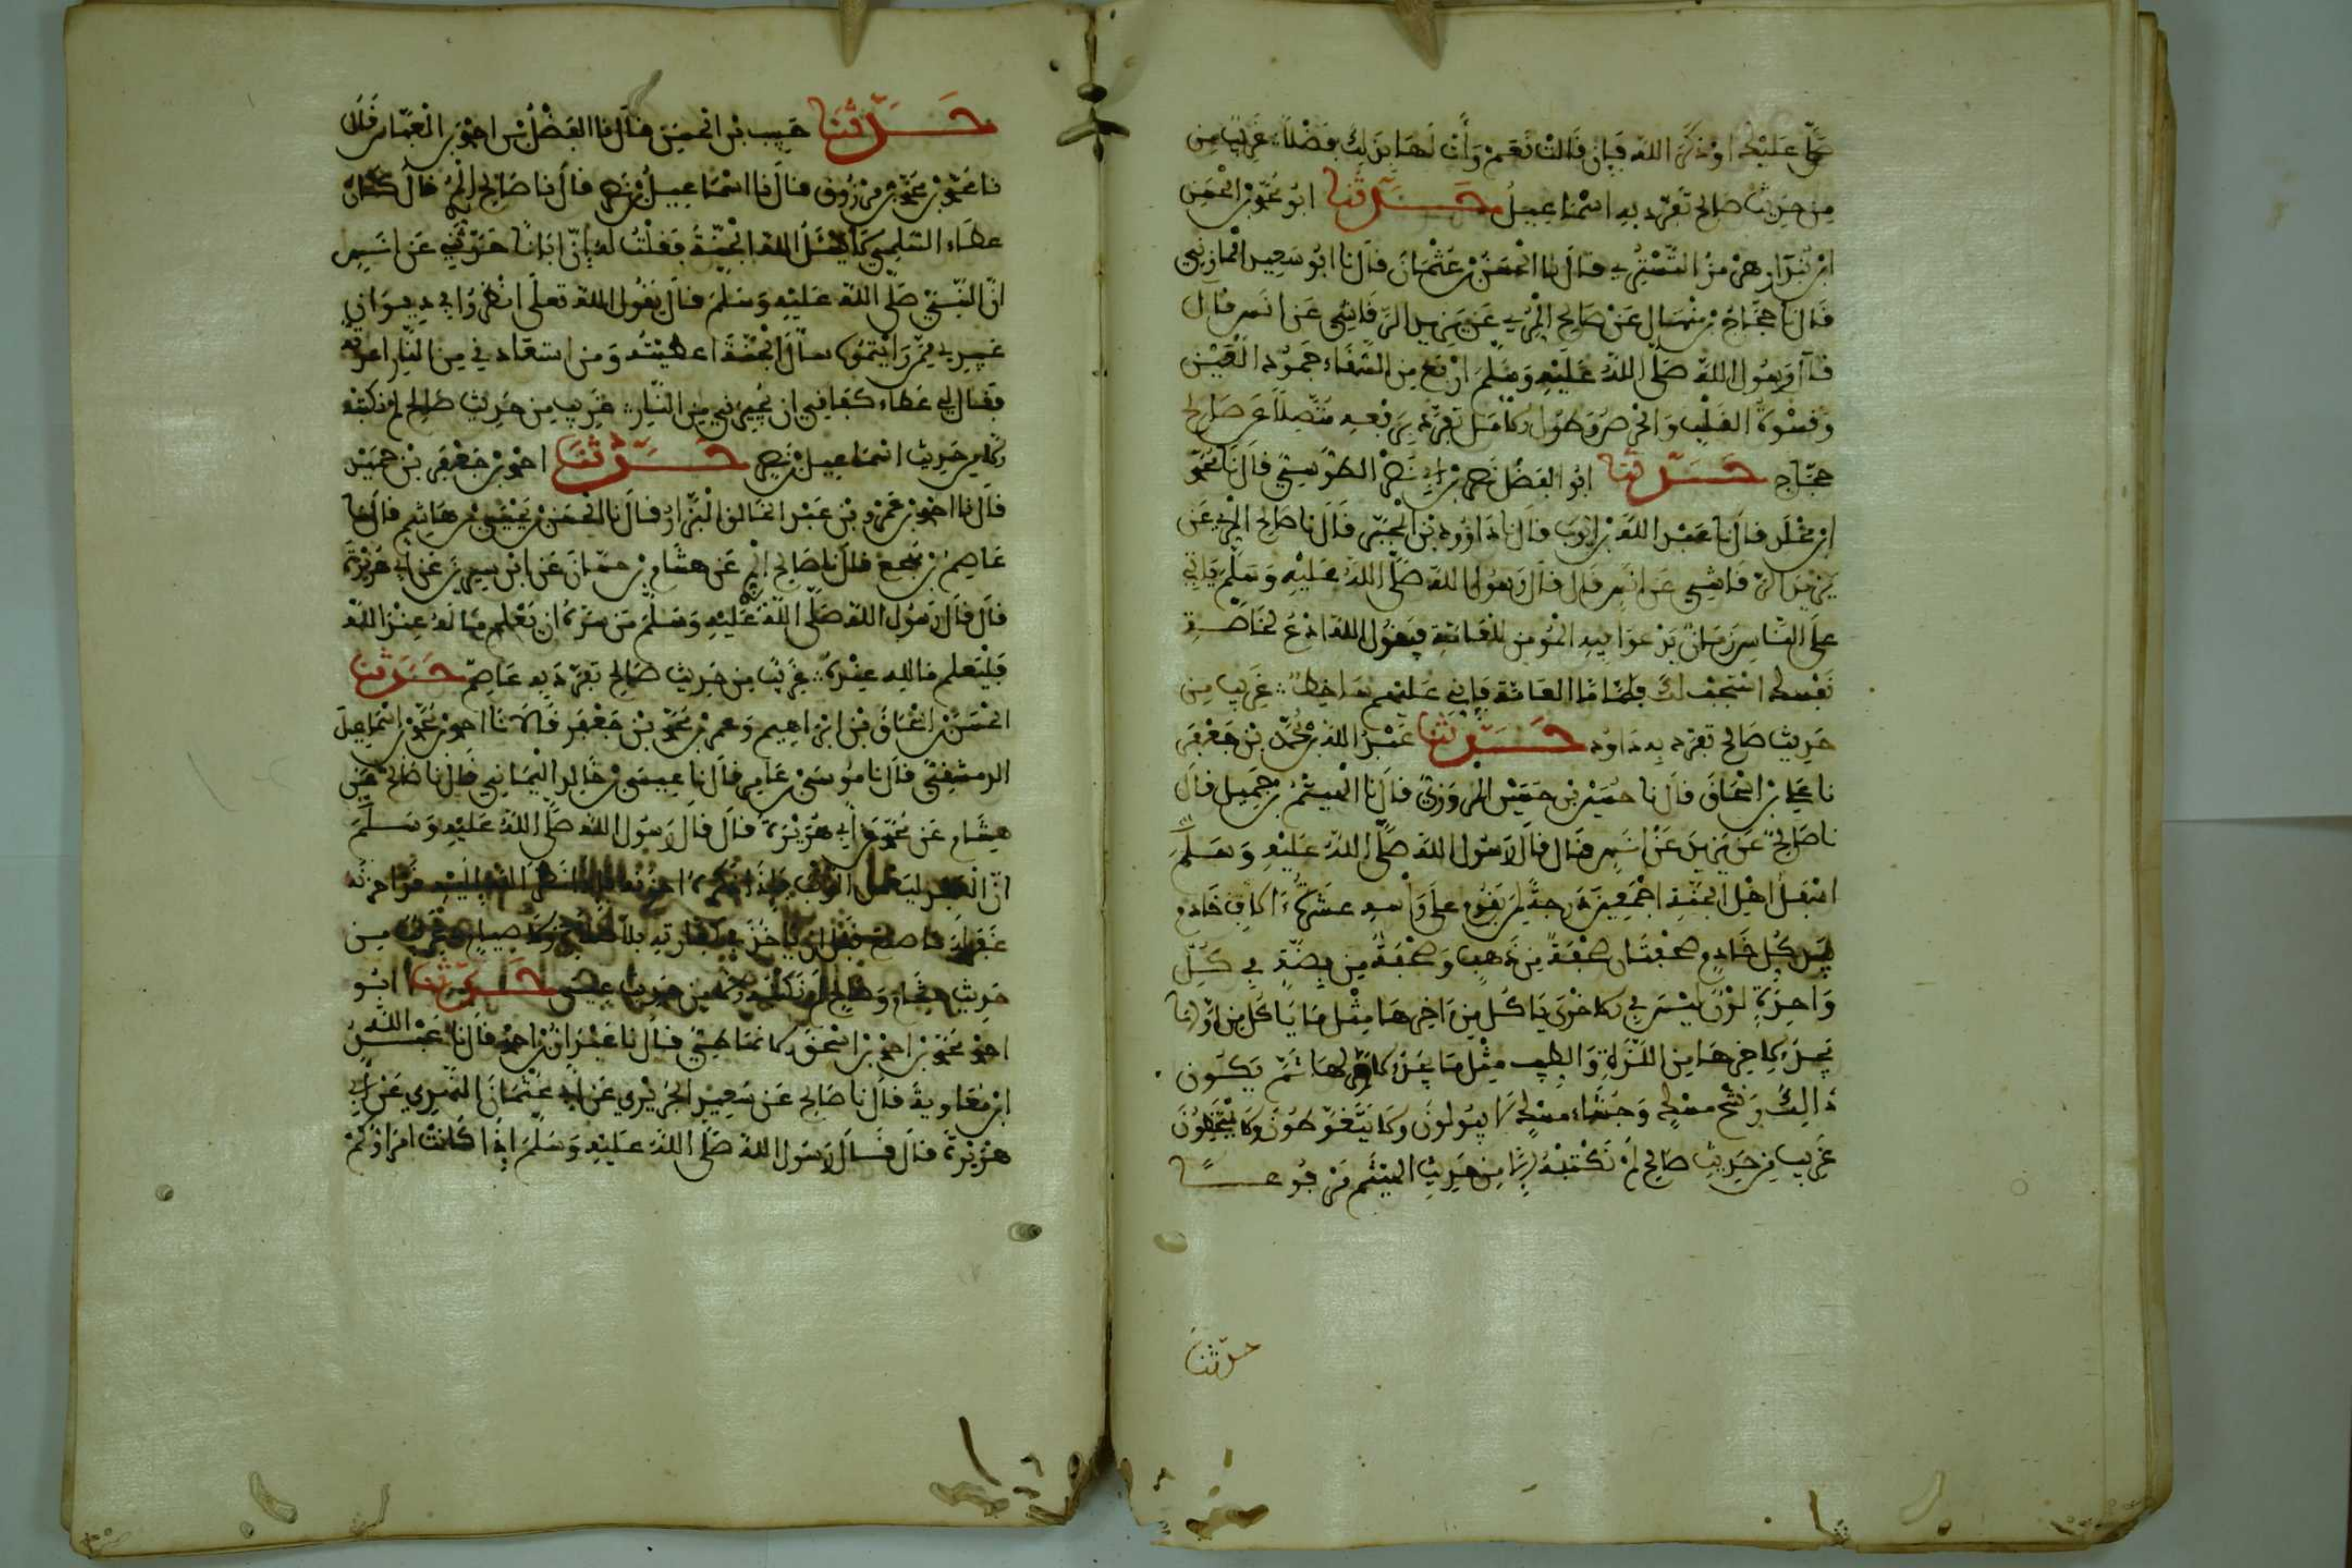 صلى عليه او ذكر الله فإن قالت نعم وأن لها بذلك فضلا غريب من
من حديث صالح تفرد به اسماعيل حدثنا ابو محمد بن الحسن
قال نا الحسن بن عثمان قال نا ابو سعيد المازني
قال نا حجاج بن منهال عن صالح المري عن يزيد الرقاشي عن انس قال
قال رسول الله صلى الله عليه وسلم اربع من الشقاء جمود العين
وقسوة القلب والحرص وطول الامل تفرد برفعه متصلا عن صالح
حجاج حدثنا ابو الفضل نصر بن ابي نصر الطوسي قال نا محمد
ابن مخلد قال نا عبد الله بن ايوب قال نا داوود بن المحبر قال نا صالح المري عن
يزيد الرقاشي عن انس قال قال رسول الله صلى الله عليه وسلم ياتي
على الناس زمان يدعوا فيه المومن للعامة فيقول الله ادع لخاصة
نفسك استجب لك فاما العامة فإني عليهم ساخط غريب من
حديث صالح تفرد به داود حدثنا عبد الله بن محمد بن جعفر
نا علي بن اسحاق قال نا حسين بن حسين المروزي قال نا الهيثم بن جميل قال
نا صالح عن يزيد عن انس قال قال رسول الله صلى الله عليه وسلم
اسفل اهل الجنة اجمعين درجة لمن يقوم على راسه عشرة ءالاف خادم
بيد كل خادم صحفتان صحفة من ذهب وصحفة من فضة في كل
واحدة لون ليس في الاخرى ياكل من ءاخرها مثل ما ياكل من اولها
يجد لاخرها من اللذة والطيب مثل ما يجد لاولها ثم يكون
ذالك رشح مسك وجشاء مسك لا يبولون ولا يتغوطون ولا يتمخطون
غريب من حديث صالح لم نكتبه الا من حديث الهيثم مرفوعا
حدثنا
حدثنا حبيب بن الحسن قال نا الفضل بن احمد بن العباس قال
نا محمد بن محمد بن مرزوق قال نا اسماعيل بن نصر قال نا صالح المري قال كان
عطاء السليمي لا يسئل الله الجنة فقلت له إن ابانا حدثني عن انس
ان النبي صلى الله عليه وسلم قال يقول الله تعلى انظروا في ديوان
عبدي فمن رايتموه سأل الجنة اعطيته ومن استعاذني من النار اعذته
فقال لي عطاء كفاني ان يجيرني من النار غريب من حديث صالح لم نكتبه
الا من حديث اسماعيل بن نصر حدثنا احمد بن جعفر بن حمدان
قال نا احمد بن عمرو بن عبد الخالق البزار قال نا الحسن بن يحيى بن هاشم قال نا
عاصم بن قال نا صالح المري عن هشام بن حسان عن ابن سيرين عن ابي هريرة
قال قال رسول الله صلى الله عليه وسلم من سره ان يعلم ما له عند الله
فليعلم ما لله عنده غريب من حديث صالح تفرد به عاصم حدثنا
الحسن بن اسحاق بن ابراهيم وعمر بن محمد بن جعفر قالا نا احمد بن محمد بن اسماعيل
الدمشقي قال نا موسى بن عامر قال نا عيسى بن خالد اليماني قال نا صالح عن
هشام عن محمد عن ابي هريرة قال قال رسول الله صلى الله عليه وسلم
ان العبد ليعمل الذنب فإذا ذكره احزنه فإذا نظر الله إليه قد احزنه
غفر له ما صنع قبل ان ياخذ في كفارته بلا صلاة ولا صيام غريب من
حديث هشام وصالح لم نكتبه الا من حديث عيسى حدثنا ابو
احمد محمد بن احمد بن اسحق الانماطي قال نا عبدان بن احمد قال نا عبد الله
ابن معاوية قال نا صالح عن سعيد الجريري عن ابي عثمان النهدي عن ابي
هريرة قال قال رسول الله صلى الله عليه وسلم اذا كانت امراؤكم